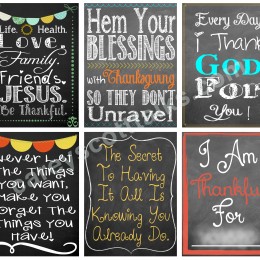 Life. Health.
Love
Family.
Friends.
JESUS.
Be Thankful.
Hem Your
BLESSINGS
with Thanksgiving
SO THEY DON'T
Unravel
Every Day
I Thank
GOD
For
You!
Never Let
The Things
You Want,
Make You
Forget The
Things You
Have!
The Secret
To Having
It All Is
Knowing You
Already Do.
I Am
Thankful
For